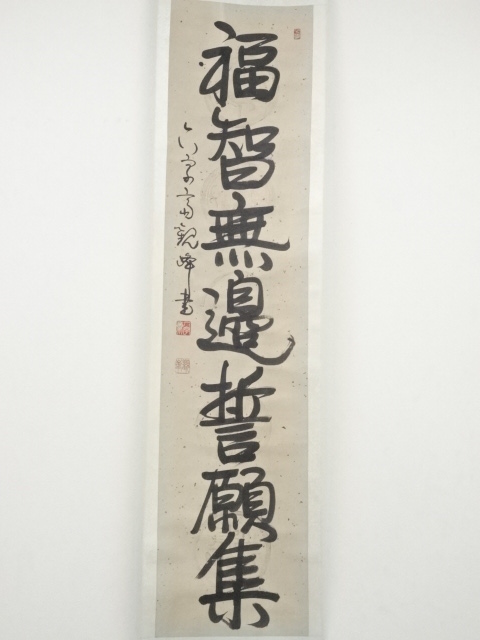 福智無邊誓願集
観峰書